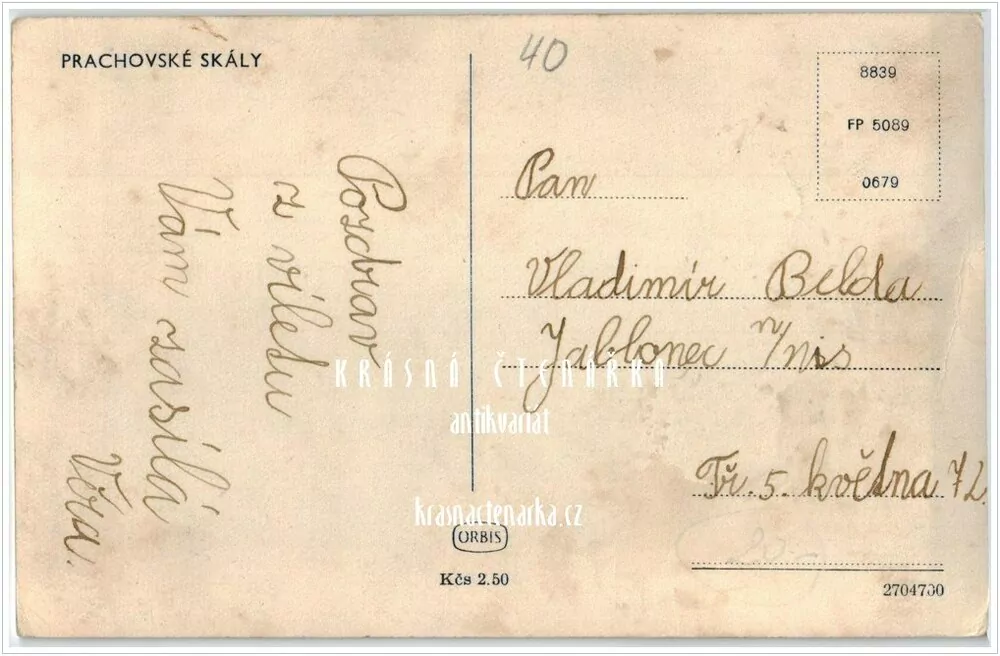 PRACHOVSKÉ SKÁLY
40
8839
FP 5089
0679
Pozdrav
z víledu
Vám zasílá
Věra.
Pan
Vladimír Belda
Jablonec n/Nis
Tř. 5. května 72.
KRÁSNÁ ČTENÁŘKA
antikvariát
krasnactenarka.cz
ORBIS
Kčs 2.50
2704730